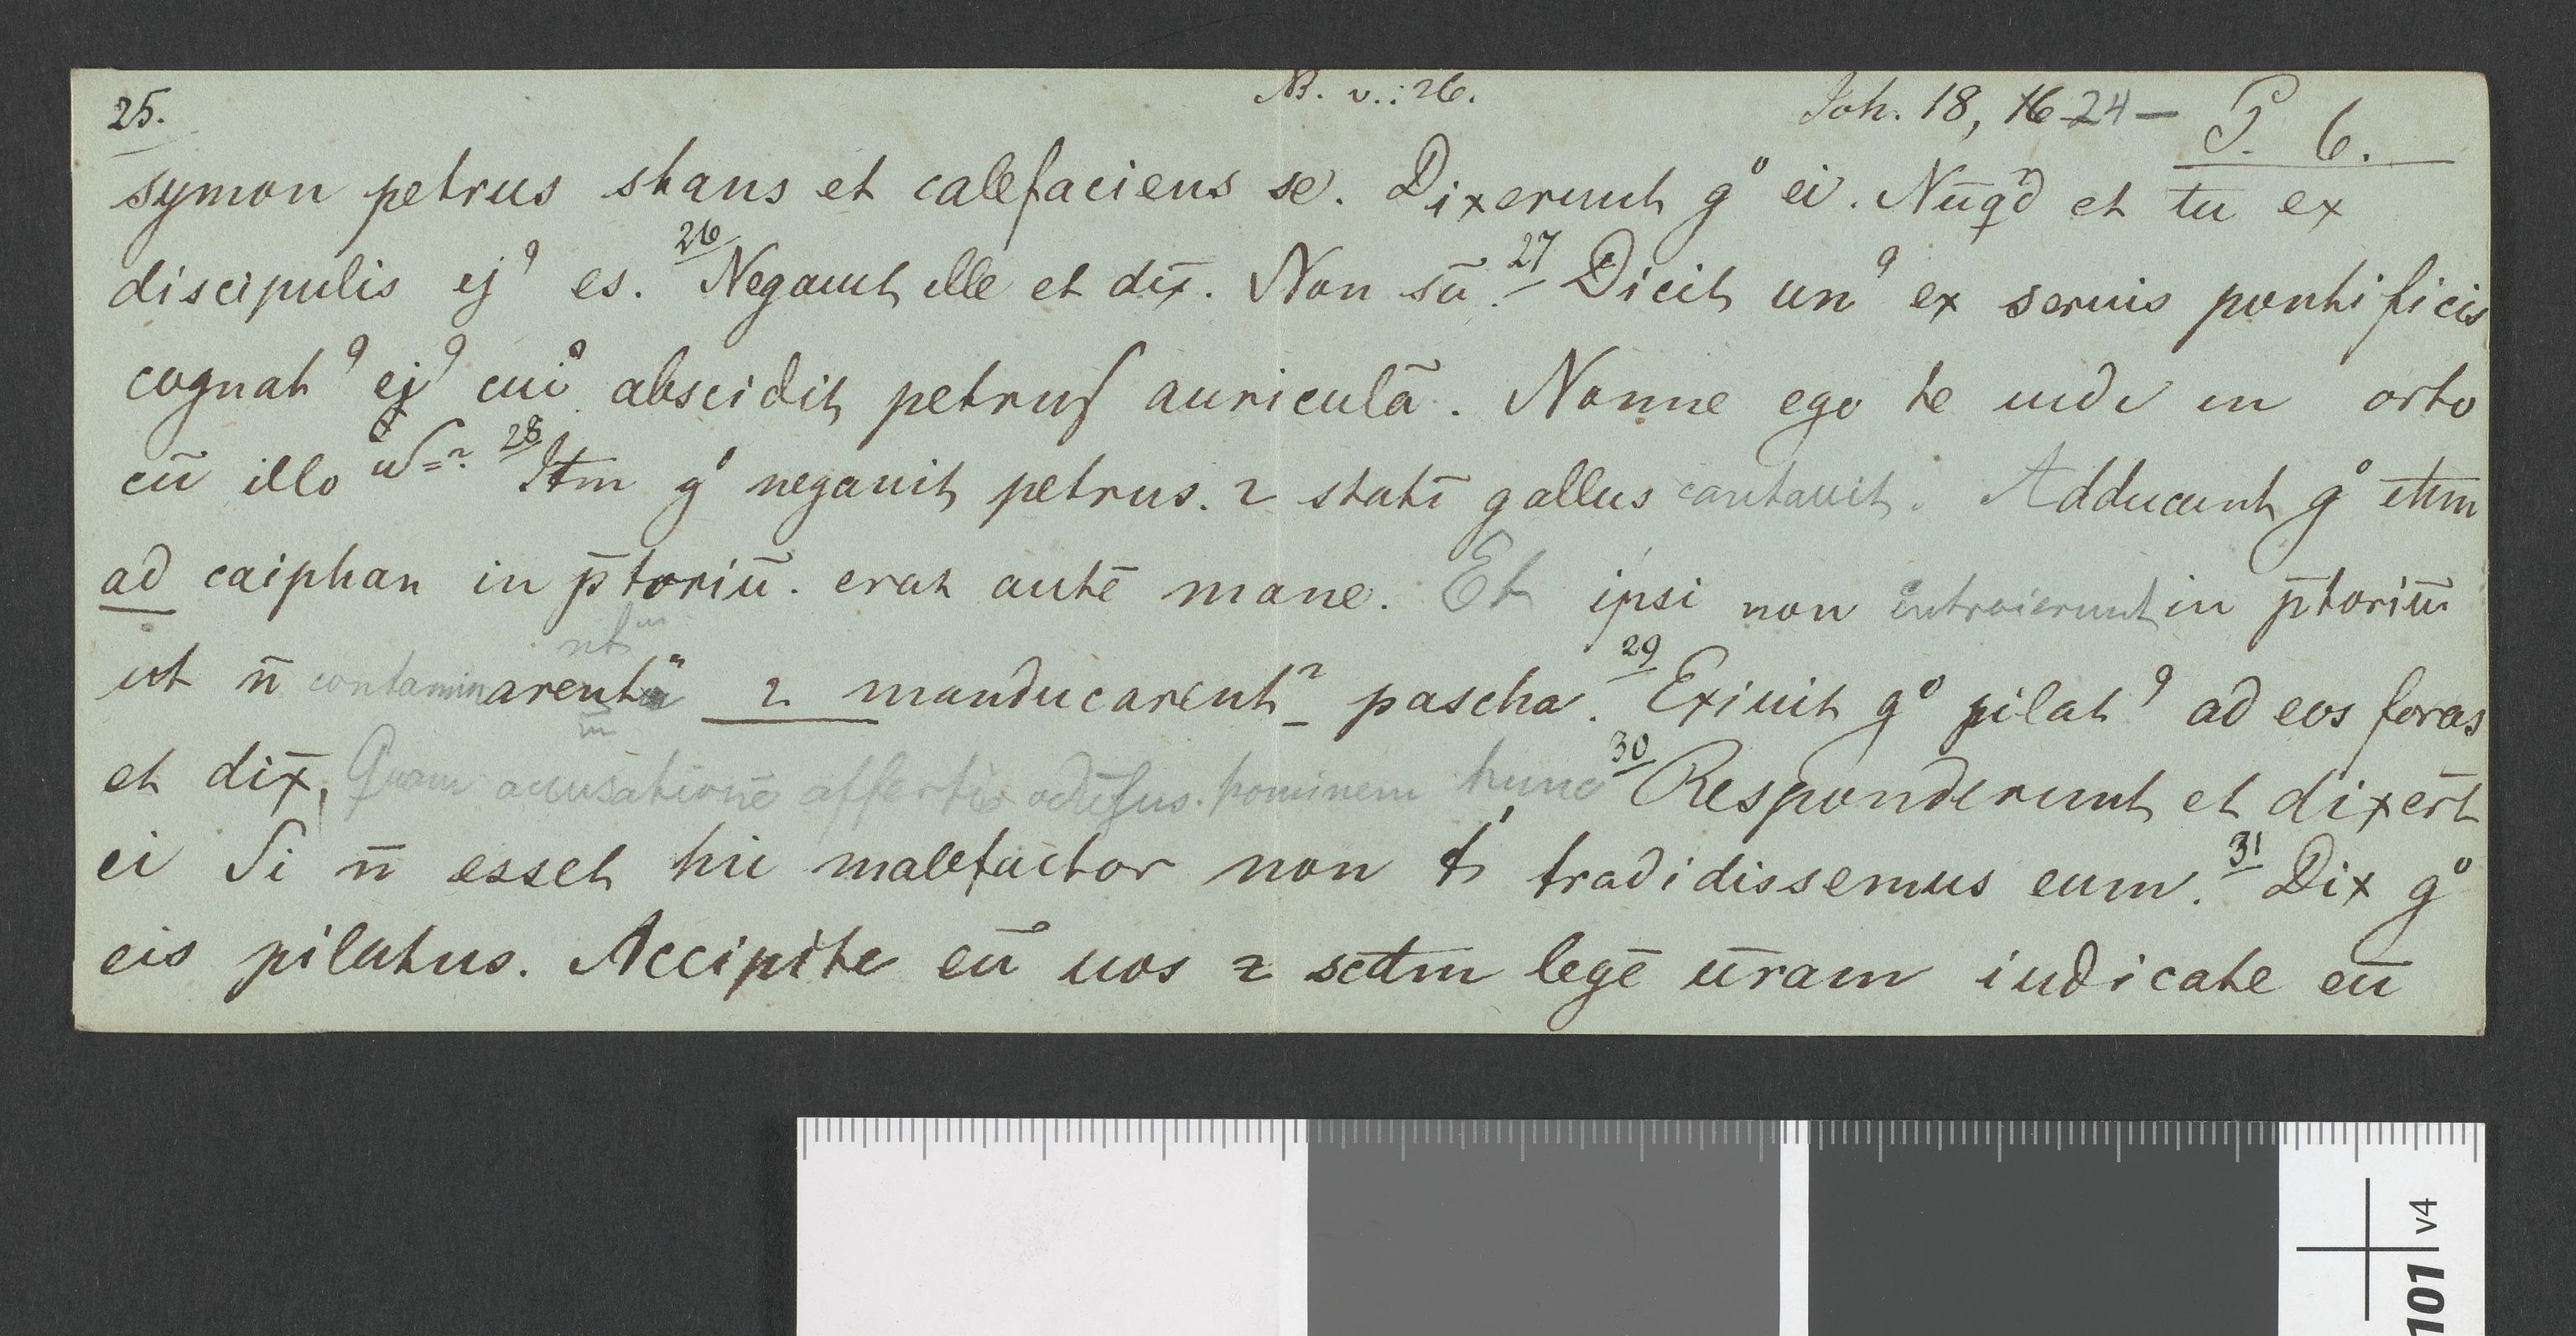 25. NB. v.: 26. Joh. 18, 16-24 — P. 6.
symon petrus stans et calefaciens se. Dixerunt g° ei. Nūq̄d et tu ex
discipulis ejꝰ es. 26 Negauit ille et dix̄. Non sū. 27 Dicit unꝰ ex seruis pontificis
cognatꝰ ejꝰ cuiꝰ abscidit petruſ auriculā. Nonne ego te uidi in orto
cū illo 28 Itm g° negauit petrus. ⁊ statī gallus cantauit. Adducunt g° ihm
ad caiphan in p̄toriū. erat autē mane. Et ipsi non introierunt in p̄toriū
ut n̄ contaminarent ⁊ manducarent pascha. 29 Exiuit g° pilatꝰ ad eos foras
et dix̄, Quam accusationē affertis aduſus hominem hunc 30 Responderunt et dixert̄
ei Si n̄ esset hic malefactor non t' tradidissemus eum. 31 Dix g°
eis pilatus. Accipite eū uos ⁊ scdm legē ūram iudicate eū
101 v4